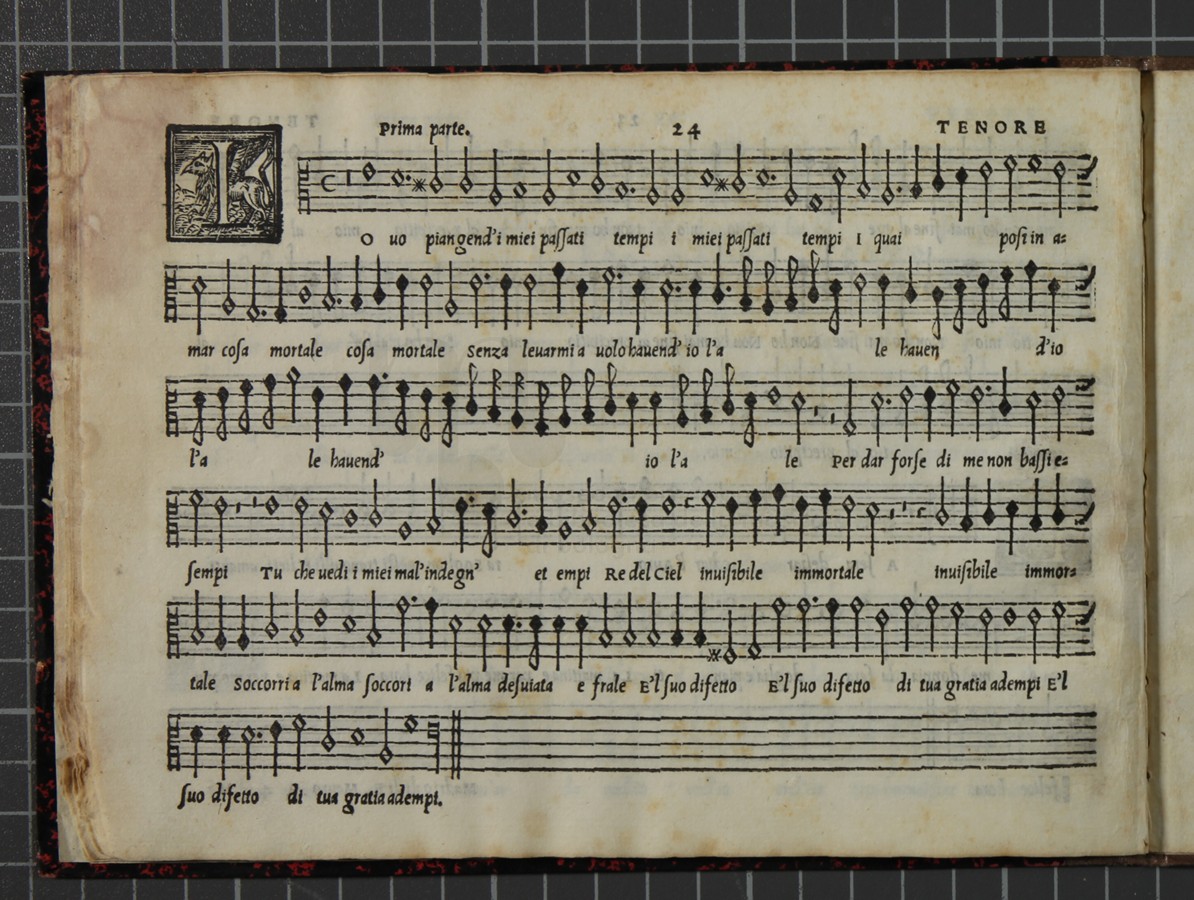 Prima parte. 24 TENORE
I
O uo piangend'i miei paſſati tempi i miei paſſati tempi I quai poſi in a=
mar coſa mortale coſa mortale Senza leuarmi a uolo hauend' io l'a le hauen d'io
l'a le hauend' io l'a le Per dar forſe di me non baſſi e=
ſempi Tu che uedi i miei mal'indegn' et empi Re del Ciel inuiſibile immortale inuiſibile immor=
tale Soccorri a l'alma ſoccori a l'alma deſuiata e frale E'l ſuo difetto E'l ſuo difetto di tua gratia adempi E'l
ſuo difetto di tua gratia adempi.